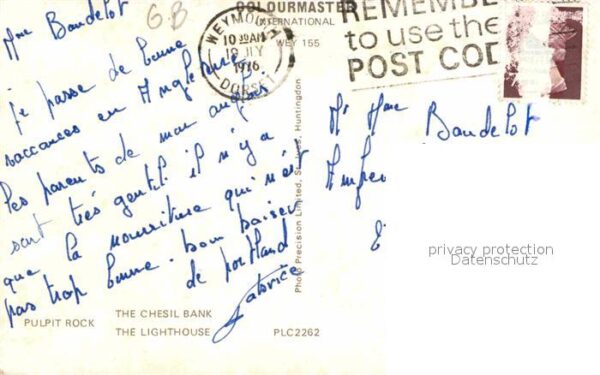 GB
COLOURMASTER
INTERNATIONAL
WEY 155
WEYMOUTH
10 30AM
1976
DORSET
REMEMBER
to use the
POST CODE
Mme Baudelot
je passe de bonne
vaccances en Angleterre
Les parents de mon anglais
sont très gentil il n'y a
que la nourriture qui n'est
pas trop bonne. bon baiser
de portland
Fabrice
Mr Mme
Baudelot
privacy protection
Datenschutz
Photo Precision Limited, St. Ives, Huntingdon
PULPIT ROCK
THE CHESIL BANK
THE LIGHTHOUSE
PLC2262